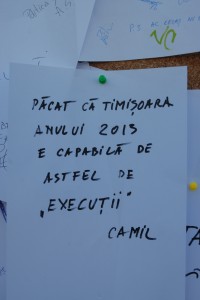 PĂCAT CĂ TIMIȘOARA
ANULUI 2013
E CAPABILĂ DE
ASTFEL DE
„EXECUȚII"
CAMIL